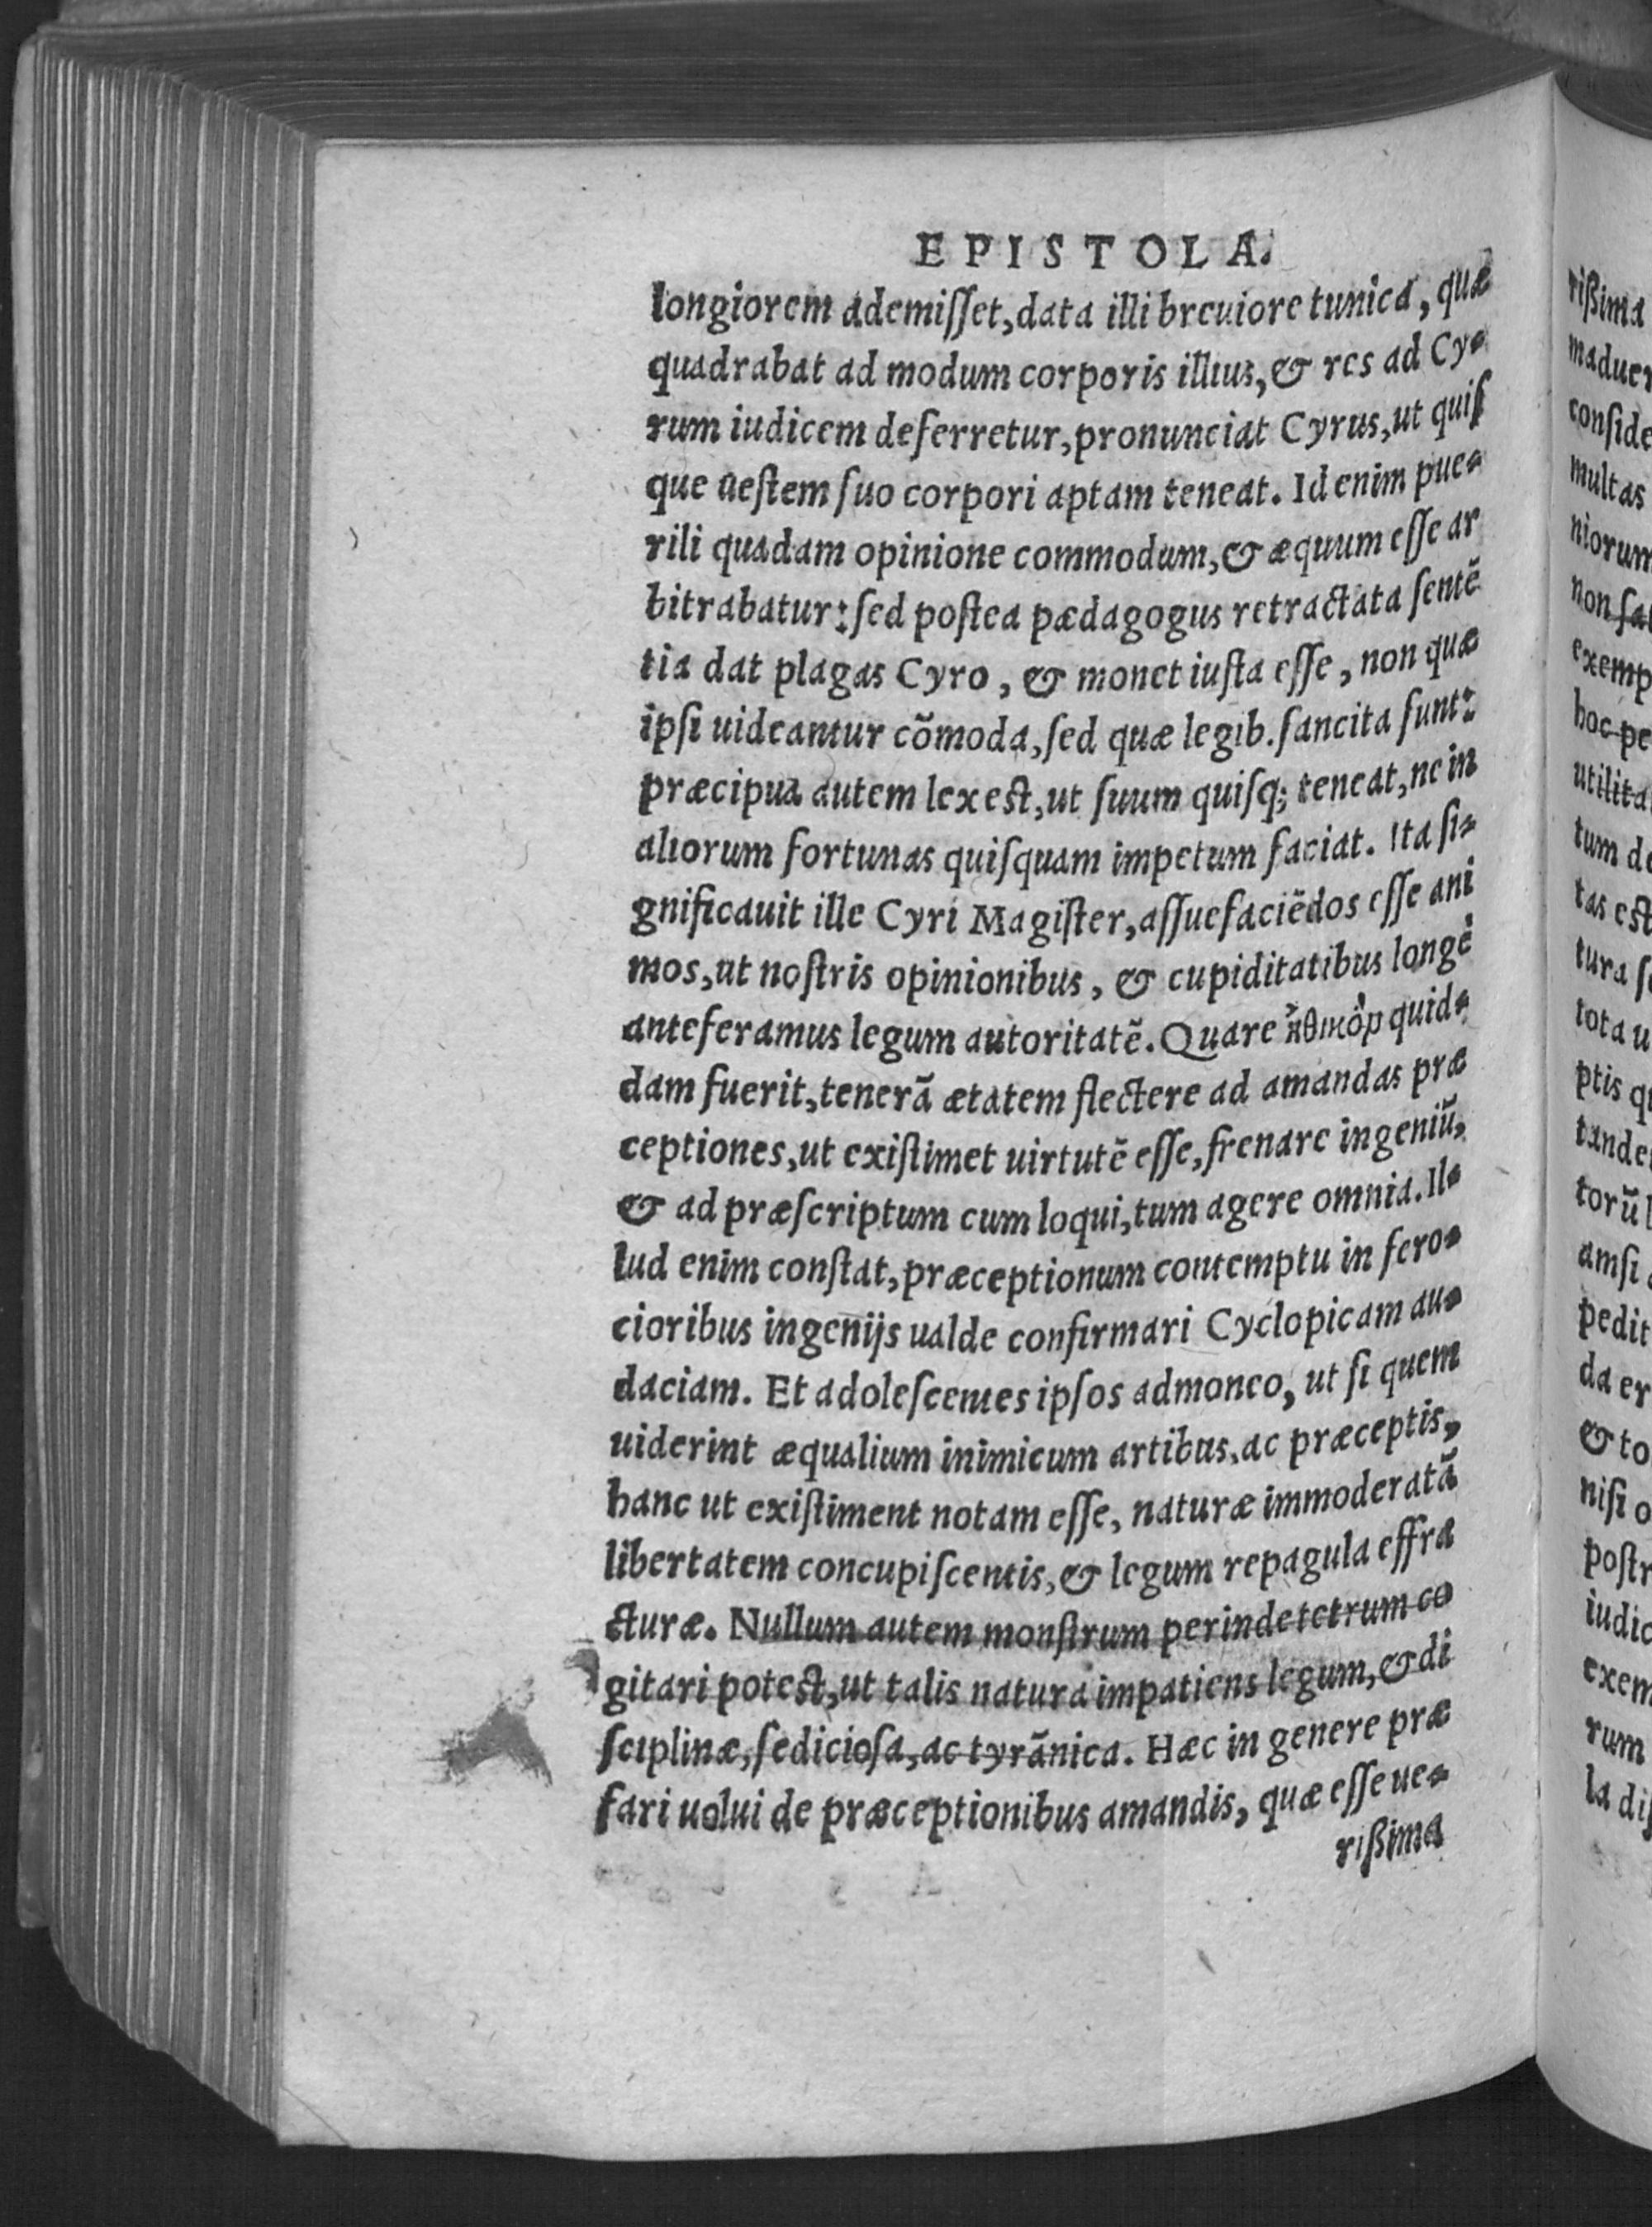 EPISTOLA.
longiorem ademiſſet, data illi breuiore tunica, quæ
quadrabat ad modum corporis illius, & res ad Cy-
rum iudicem deferretur, pronunciat Cyrus, ut quiſ
que ueſtem ſuo corpori aptam teneat. Id enim pue-
rili quadam opinione commodum, & æquum eſſe ar
bitrabatur: ſed poſtea pædagogus retractata ſentē
tia dat plagas Cyro, & monet iuſta eſſe, non quæ
ipſi uideantur cōmoda, ſed quæ legib. ſancita ſunt:
præcipua autem lex eſt, ut ſuum quiſq; teneat, ne in
aliorum fortunas quiſquam impetum faciat. Ita ſi-
gnificauit ille Cyri Magiſter, aſſuefaciēdos eſſe ani
mos, ut noſtris opinionibus, & cupiditatibus longè
anteferamus legum autoritatē. Quare ἠθικὸν quid-
dam fuerit, tenerā ætatem flectere ad amandas præ
ceptiones, ut exiſtimet uirtutē eſſe, frenare ingeniū,
& ad præſcriptum cum loqui, tum agere omnia. Il-
lud enim conſtat, præceptionum contemptu in fero-
cioribus ingenijs ualde confirmari Cyclopicam au-
daciam. Et adoleſcentes ipſos admoneo, ut ſi quem
uiderint æqualium inimicum artibus, ac præceptis,
hanc ut exiſtiment notam eſſe, naturæ immoderatā
libertatem concupiſcentis, & legum repagula effra
cturæ. Nullum autem monſtrum perinde tetrum co
gitari poteſt, ut talis natura impatiens legum, & di
ſciplinæ, ſedicioſa, ac tyrānica. Hæc in genere præ
fari uolui de præceptionibus amandis, quæ eſſe ue-
rißima
rißima
maduer
conſide
multas
niorum
non ſat
exemp
hoc pe
utilita
tum de
tas eſt
tura ſ
tota u
ptis q
tande
torū
amſi
pedit
da er
& to
niſi o
poſtr
iudic
exem
rum
la diſ